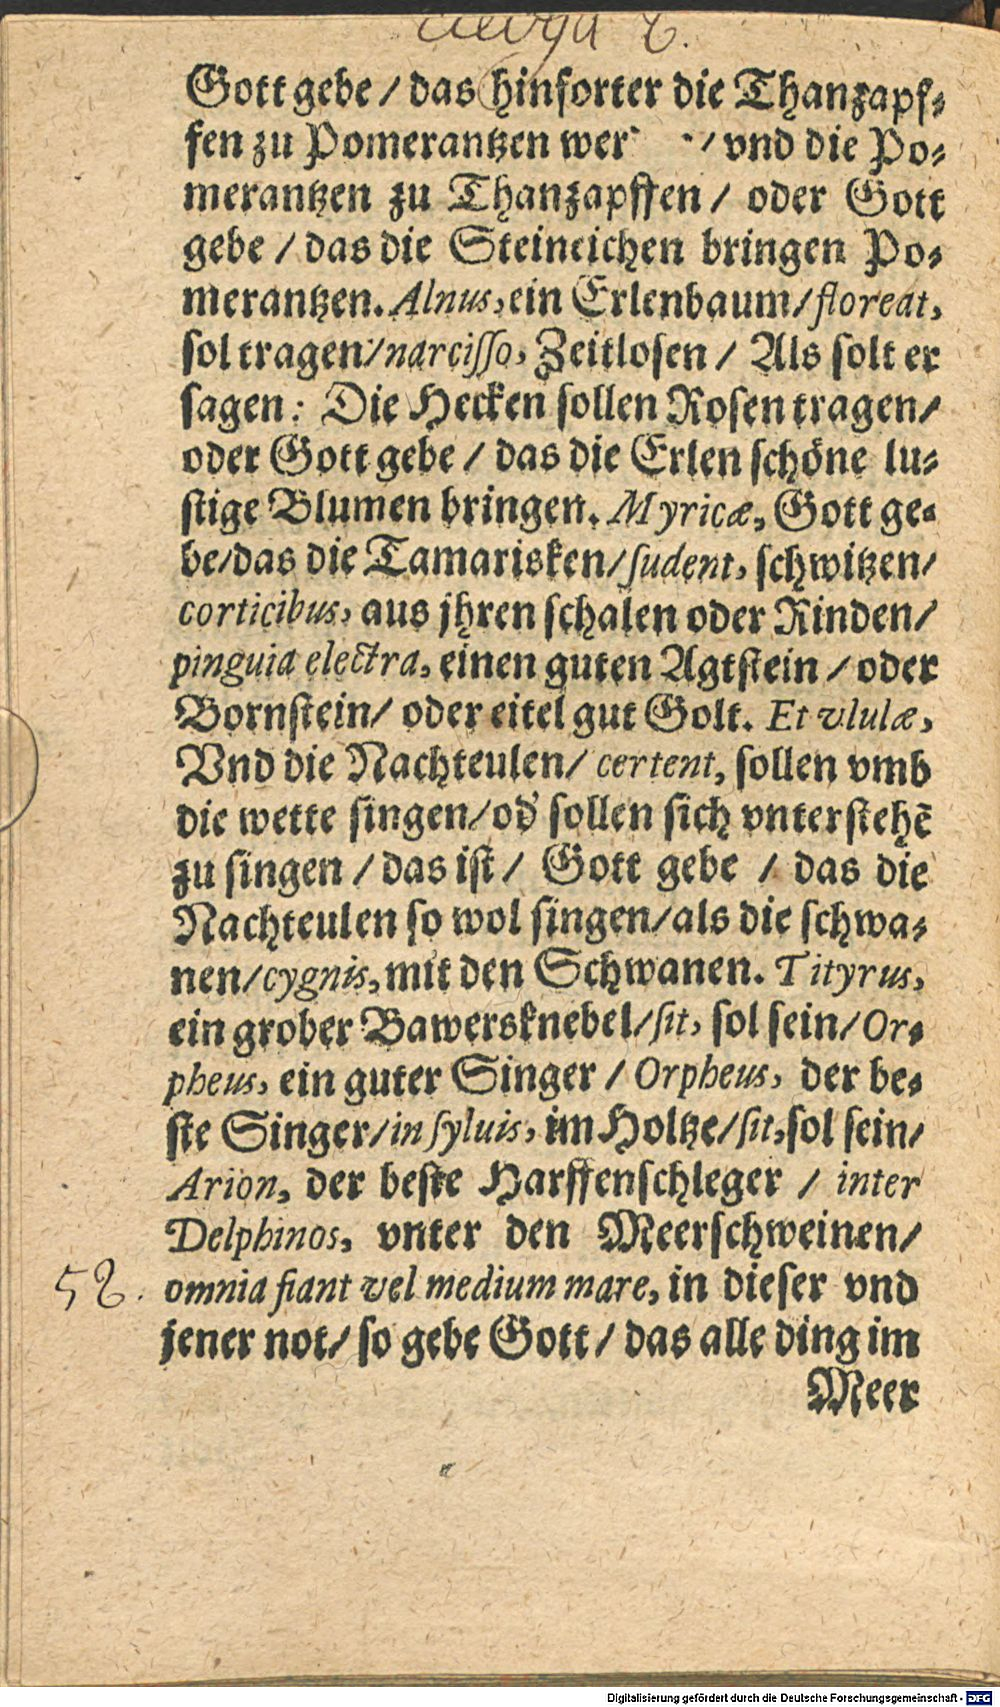 Gott gebe / das hinforter die Thanzapf⸗
fen zu Pomerantzen wer / vnd die Po⸗
merantzen zu Thanzapffen / oder Gott
gebe / das die Steineichen bringen Po⸗
merantzen. Alnus, ein Erlenbaum / floreat,
sol tragen / narcisso, Zeitlosen / Als solt er
sagen: Die Hecken sollen Rosen tragen /
oder Gott gebe / das die Erlen schöne lu⸗
stige Blumen bringen. Myricæ, Gott ge⸗
be / das die Tamarisken / sudent, schwitzen /
corticibus, aus jhren schalen oder Rinden /
pinguia electra, einen guten Agtstein / oder
Bornstein / oder eitel gut Golt. Et vlulæ,
Vnd die Nachteulen / certent, sollen vmb
die wette singen / od' sollen sich vnterstehē
zu singen / das ist / Gott gebe / das die
Nachteulen so wol singen / als die schwa⸗
nen / cygnis, mit den Schwanen. Tityrus,
ein grober Bawersknebel / sit, sol sein / Or⸗
pheus, ein guter Singer / Orpheus, der be⸗
ste Singer / in syluis, im Holtze / sit, sol sein /
Arion, der beste Harffenschleger / inter
Delphinos, vnter den Meerschweinen /
58. omnia fiant vel medium mare, in dieser vnd
jener not / so gebe Gott / das alle ding im
Meer
Digitalisierung gefördert durch die Deutsche Forschungsgemeinschaft - DFG